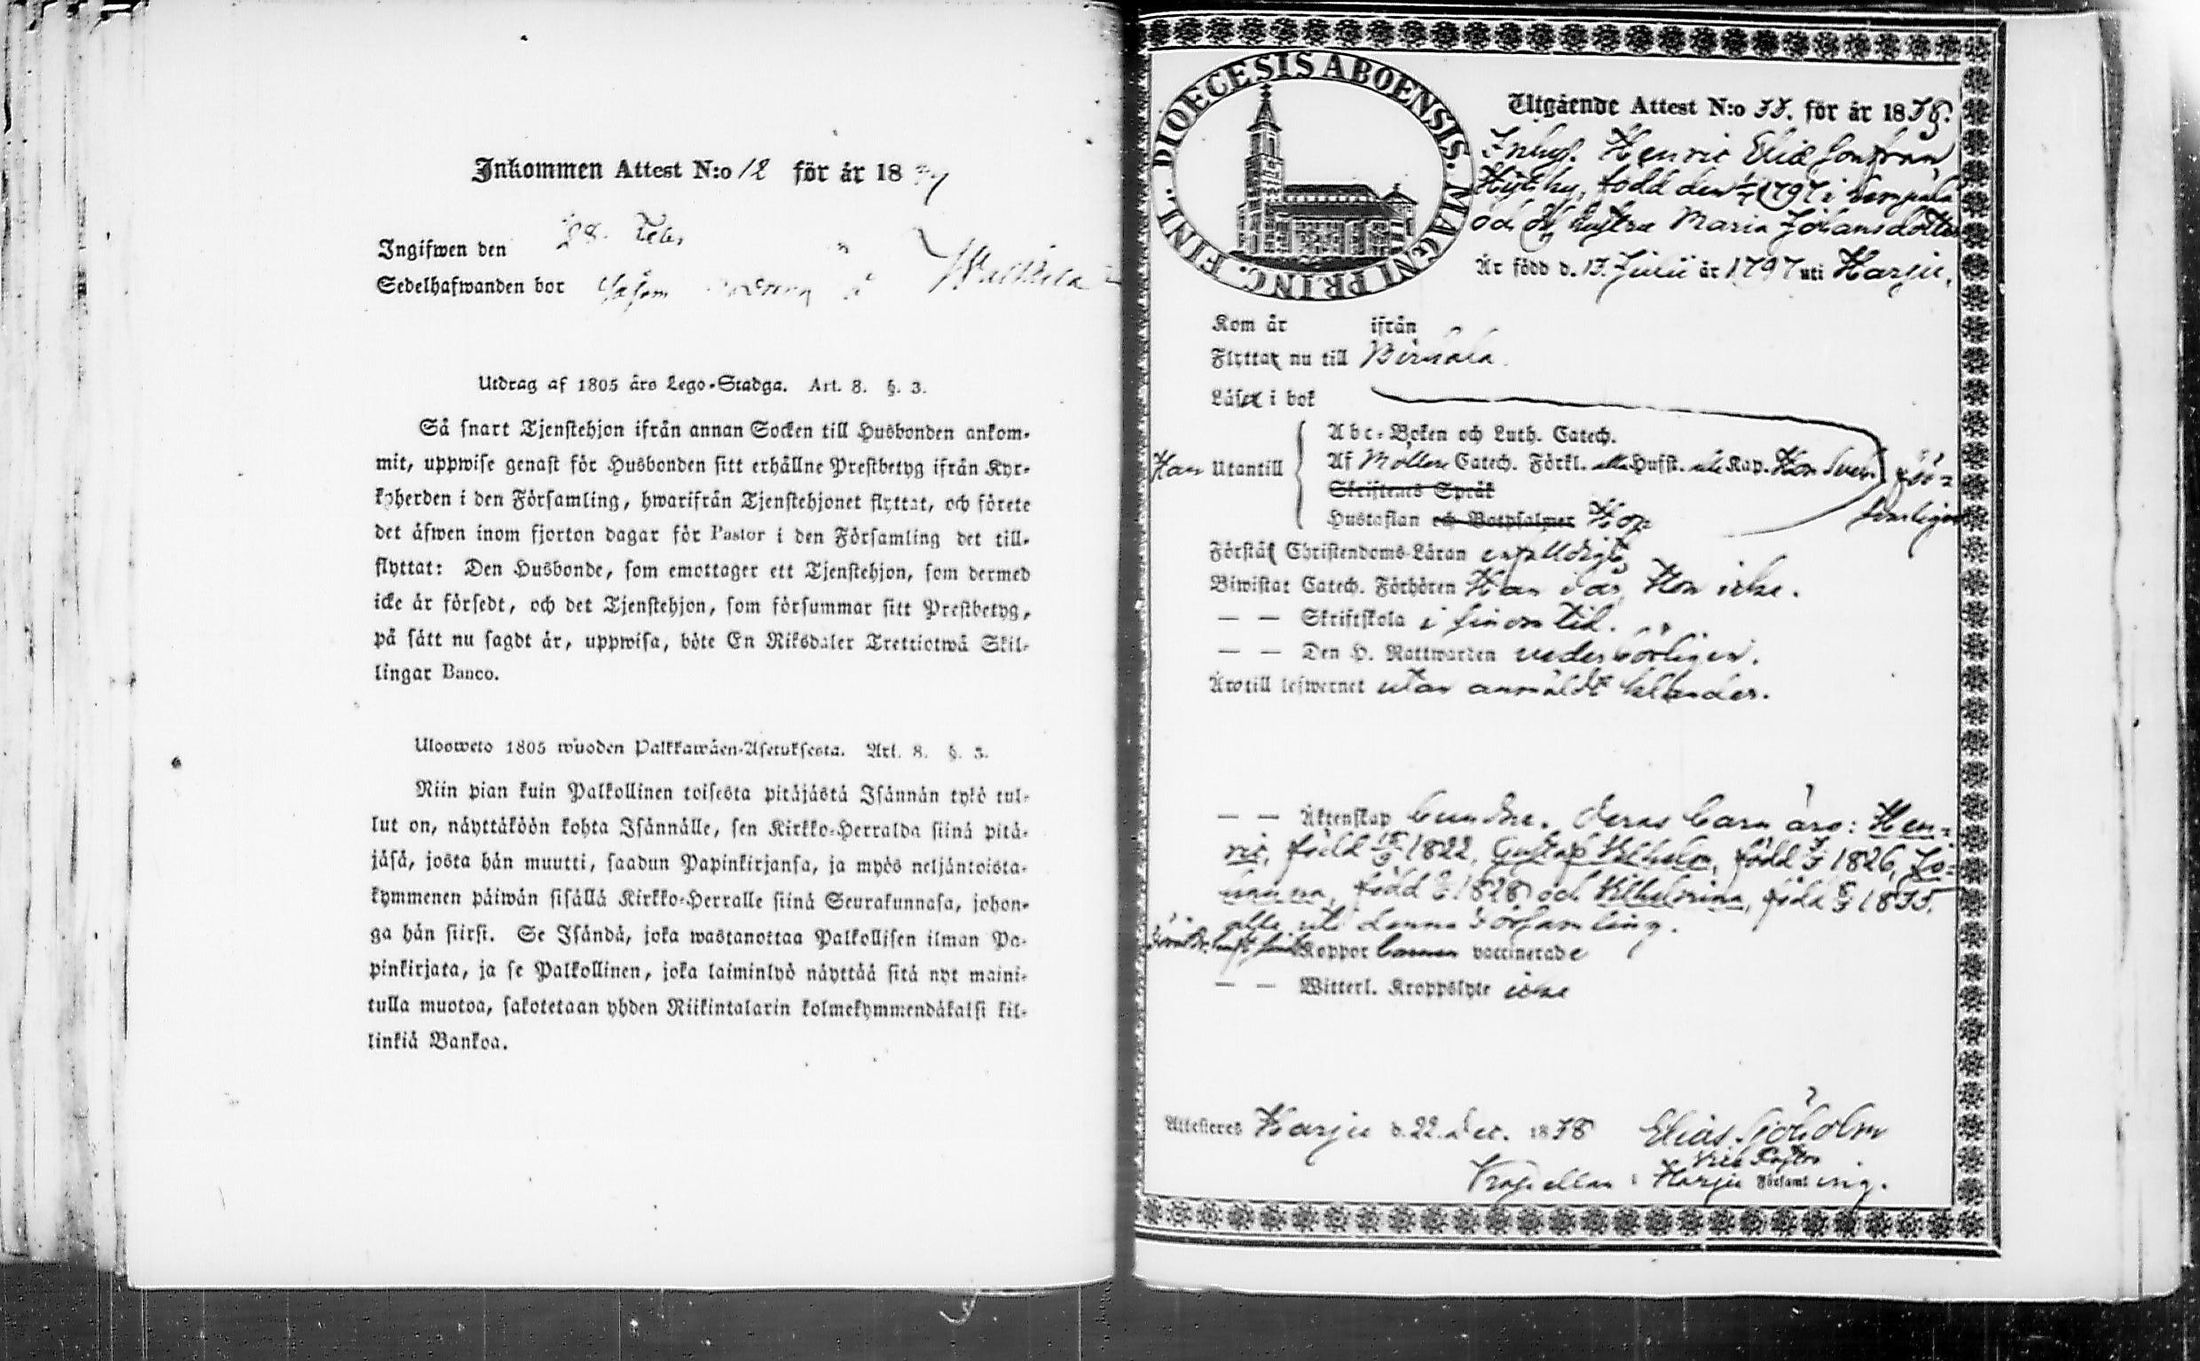 Inkommen Attest N:o 12 för år 18
Ingifwen den 28. Feb.
Sedelhafwanden bor såsom
Utdrag af 1805 års Lego-Stadga. Art. 8. §. 3.
Så snart Tjenstehjon ifrån annan Socken till Husbonden ankom-
mit, uppwise genast för Husbonden sitt erhållne Prestbetyg ifrån Kyr-
koherden i den Församling, hwarifrån Tjenstehjonet flyttat, och förete
det äfwen inom fjorton dagar för Pastor i den Församling det till-
flyttat: Den Husbonde, som emottager ett Tjenstehjon, som dermed
icke är försedt, och det Tjenstehjon, som försummar sitt Prestbetyg,
på sätt nu sagdt är, uppwisa, böte En Riksdaler Trettiotwå Skil-
lingar Banco.
Ulosweto 1805 wuoden Palkkawäen-Asetuksesta. Art. 8. §. 3.
Niin pian kuin Palkollinen toisesta pitäjästä Isännän tykö tul-
lut on, näyttäköön kohta Isännälle, sen Kirkko-Herralda siinä pitä-
jäsä, josta hän muutti, saadun Papinkirjansa, ja myös neljäntoista-
kymmenen päiwän sisällä Kirkko-Herralle siinä Seurakunnasa, johon-
ga hän siirsi. Se Isändä, joka wastanottaa Palkollisen ilman Pa-
pinkirjata, ja se Palkollinen, joka laiminlyö näyttää sitä nyt maini-
tulla muotoa, sakotetaan yhden Riikintalarin kolmekymmendäkaksi kil-
linkiä Bankoa.
FINL. DIOECESIS ABOENSIS. MAGNI PRINC.
Utgående Attest N:o 33. för år 1838.
Inhys. Henric Eliæ son från
född den 1797 i
och H. hustru Maria Johansdotter
Är född d. 13. Julii år 1797 uti Karju.
Kom år ifrån
Flyttat nu till Birkala.
Läser i bok
Han Utantill
Abc-Boken och Luth. Catech.
Af Möllers Catech. Förkl. alla Hufst. alla Kap. Hon Svebi. för-
Skriftenes Språk
Hustaflan och Botpsalmer Hon
Förstå Christendoms-Läran enfaldigt,
Biwistat Catech. Förhören Han var, Hon icke.
— — Skriftskola i sinom tid.
— — Den H. Nattwarden vederbörligen.
Äro till lefwernet utan anmäldt klander.
— — Äktenskap bundne. Deras barn äro: Hen-
ric, född 1822, Gustaf Vilhelm, född 1826, Jo-
hanna, född 1828 och Vilhelmina, född 1835.
alla uti denna Församling.
Koppor barnen vaccinerade
— — Witterl. Kroppslyte icke
Attesteres Karju d. 22. Dec. 1838 Elias Sjöholm
Vice Pastor
Kapellan i Karju Församling.